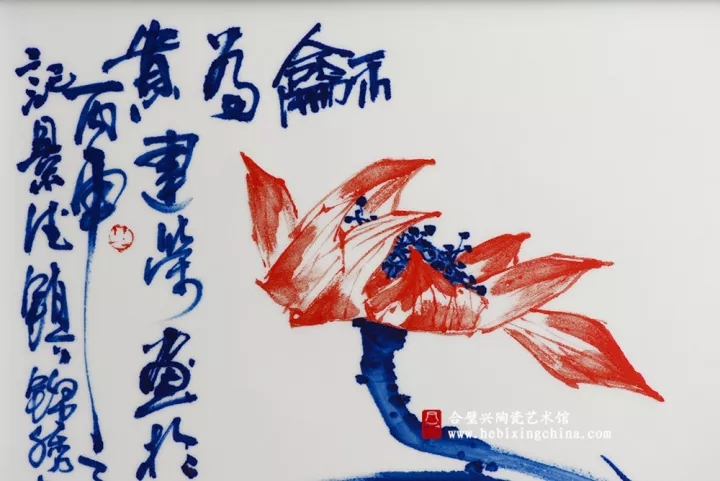 龢為貴
建荣画於
丙申
記景德鎮錦繡
合璧兴陶瓷艺术馆
www.hebixingchina.com